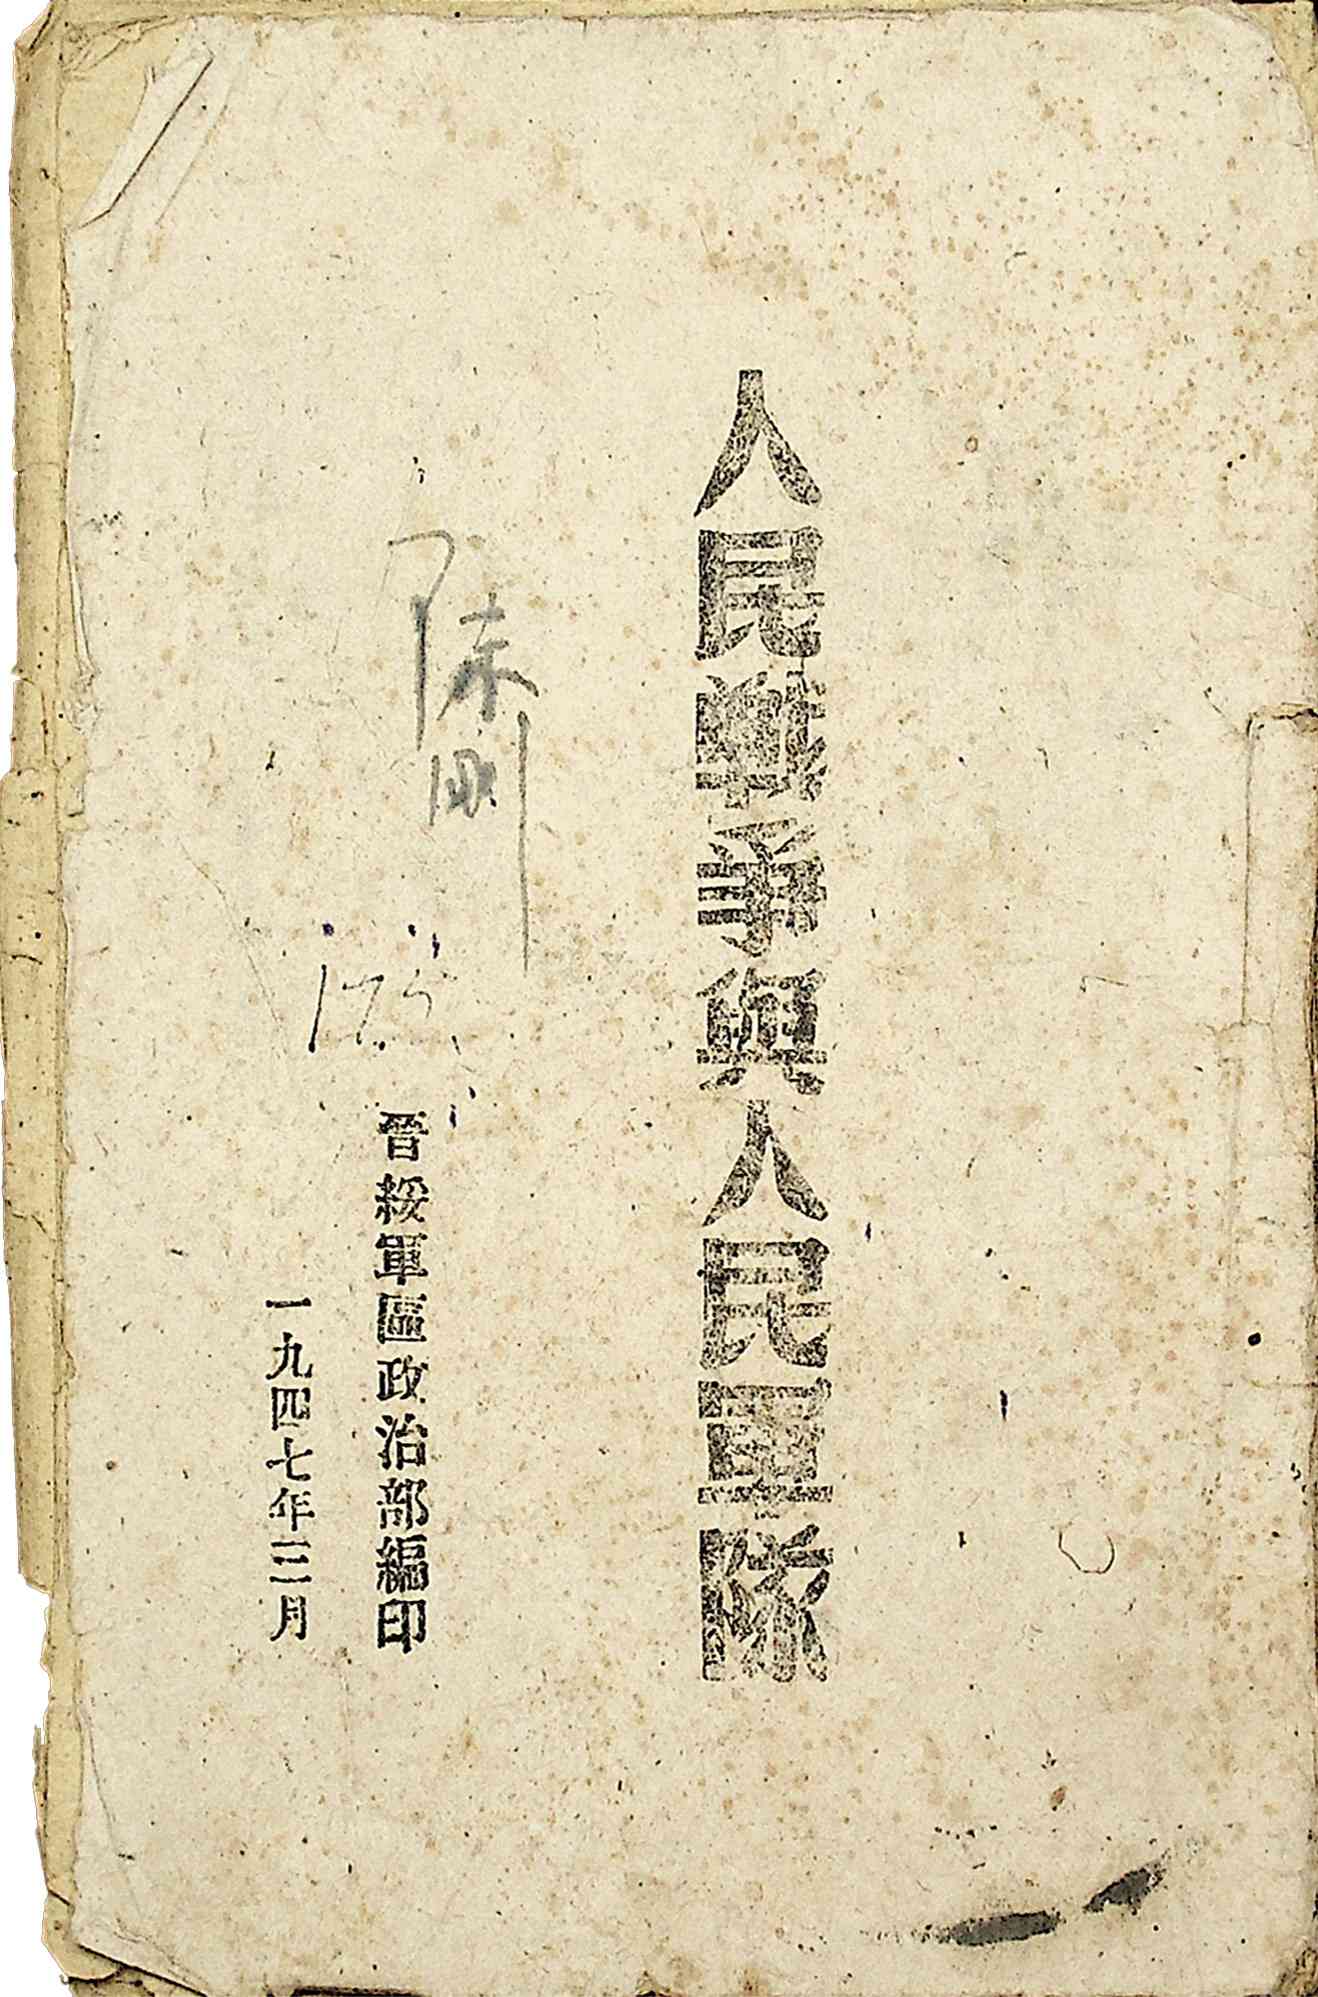 人民戰爭與人民軍隊
陳剛
175
晉綏軍區政治部編印
一九四七年三月